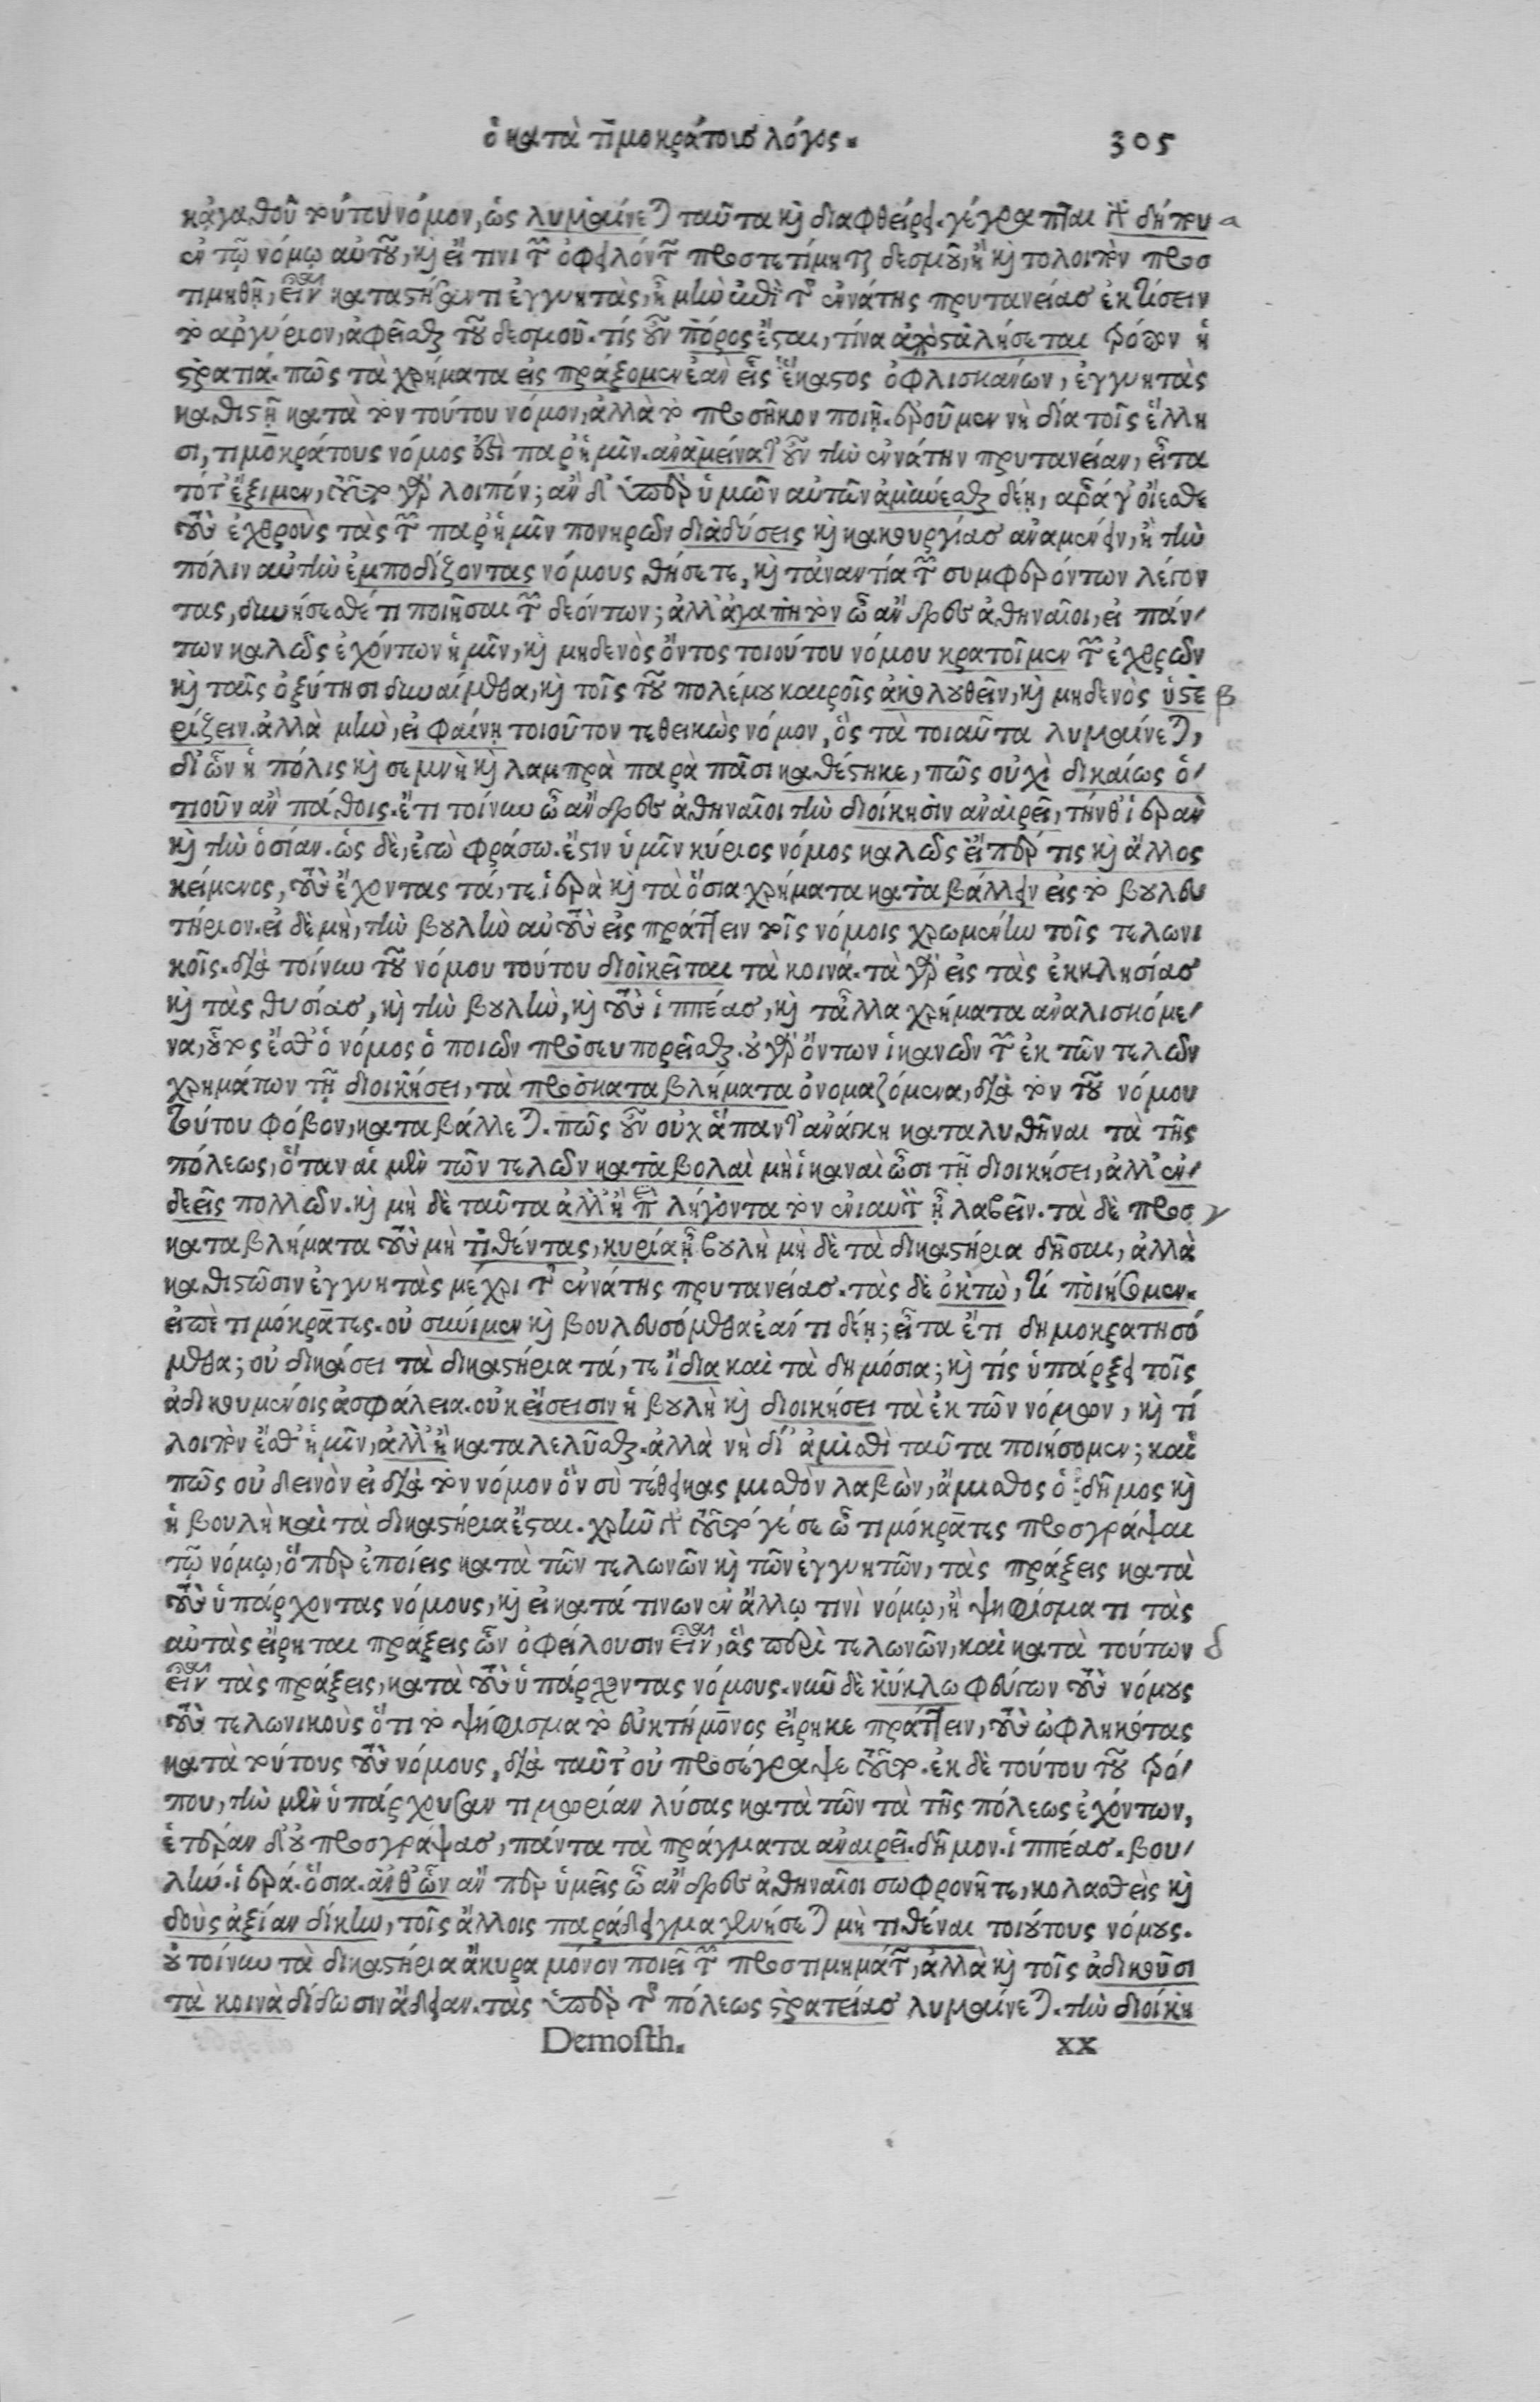 ὁ κατὰ τιμοκράτους λόγος. 305
κἀγαθοῦ τούτου νόμον, ὡς λυμαίνεται ταῦτα καὶ διαφθείρει. γέγραπται γὰρ δήπου α
ἐν τῷ νόμῳ αὐτοῦ, καὶ εἴ τινι τῶν ὀφειλόντων προστετίμηται δεσμοῦ, ἢ καὶ τολοιπὸν προσ
τιμηθῇ, εἶναι καταστήσαντι ἐγγυητὰς, ἦ μὴν ἐπὶ τῆς ἐνάτης πρυτανείας ἐκτίσειν
τὸ ἀργύριον, ἀφεῖσθαι τοῦ δεσμοῦ. τίς οὖν πόρος ἔσται, τίνα ἀποσταλήσεται τρόπον ἡ
στρατιά. πῶς τὰ χρήματα εἰς πράξομεν ἐὰν εἷς ἕκαστος ὀφλισκανων, ἐγγυητὰς
καθιστῇ κατὰ τὸν τούτου νόμον, ἀλλὰ τὸ προσῆκον ποιῇ. ἐροῦμεν νὴ δία τοῖς ἕλλη
σι, τιμοκράτους νόμος ἐστὶ παρ' ἡμῖν. ἀναμείνατ' οὖν τὴν ἐνάτην πρυτανείαν, εἶτα
τότ' ἔξιμεν, τοῦτο γὰρ λοιπόν; ἂν δ' ὑπὲρ ὑμῶν αὐτῶν ἀμύνεσθαι δέῃ, ἆρά γ' οἴεσθε
τοὺς ἐχθροὺς τὰς τῶν παρ' ἡμῖν πονηρῶν διαδύσεις καὶ κακουργίας ἀναμένειν, ἢ τὴν
πόλιν αὐτὴν ἐμποδίζοντας νόμους θήσετε, καὶ τἀναντία τῶν συμφερόντων λέγον
τας, δυνήσεσθέ τι ποιῆσαι τῶν δεόντων; ἀλλ' ἀγαπητὸν ὦ ἄνδρες ἀθηναῖοι, εἰ πάν-
των καλῶς ἐχόντων ἡμῖν, καὶ μηδενὸς ὄντος τοιούτου νόμου κρατοῖμεν τῶν ἐχθρῶν
καὶ ταῖς ὀξύτησι δυναίμεθα, καὶ τοῖς τοῦ πολέμου καιροῖς ἀκολουθεῖν, καὶ μηδενὸς ὑστε β
ρίζειν. ἀλλὰ μὴν, εἰ φαίνῃ τοιοῦτον τεθεικὼς νόμον, ὃς τὰ τοιαῦτα λυμαίνεται,
δι' ὧν ἡ πόλις καὶ σεμνὴ καὶ λαμπρὰ παρὰ πᾶσι καθέστηκε, πῶς οὐχὶ δικαίως ὁ-
τιοῦν ἂν πάθοις. ἔτι τοίνυν ὦ ἄνδρες ἀθηναῖοι τὴν διοίκησιν ἀναιρεῖ, τήνθ' ἱερὰν
καὶ τὴν ὁσίαν. ὡς δὲ, ἐγὼ φράσω. ἔστιν ὑμῖν κύριος νόμος καλῶς εἴπερ τις καὶ ἄλλος
κείμενος, τοὺς ἔχοντας τά, τε ἱερὰ καὶ τὰ ὅσια χρήματα καταβάλλειν εἰς τὸ βουλευ
τήριον. εἰ δὲ μὴ, τὴν βουλὴν αὐτοὺς εἰς πράττειν τοῖς νόμοις χρωμένην τοῖς τελωνι
κοῖς. διὰ τοίνυν τοῦ νόμου τούτου διοικεῖται τὰ κοινά. τὰ γὰρ εἰς τὰς ἐκκλησίας
καὶ τὰς θυσίας, καὶ τὴν βουλὴν, καὶ τοὺς ἱππέας, καὶ τἆλλα χρήματα ἀναλισκόμε-
να, οὗτός ἐσθ' ὁ νόμος ὁ ποιῶν προσευπορεῖσθαι. οὐ γὰρ ὄντων ἱκανῶν τῶν ἐκ τῶν τελῶν
χρημάτων τῇ διοικήσει, τὰ προσκαταβλήματα ὀνομαζόμενα, διὰ τὸν τοῦ νόμου
τούτου φόβον, καταβάλλεται. πῶς οὖν οὐχ ἅπαντ' ἀνάγκη καταλυθῆναι τὰ τῆς
πόλεως, ὅταν αἱ μὲν τῶν τελῶν καταβολαὶ μὴ ἱκαναὶ ὦσι τῇ διοικήσει, ἀλλ' ἐν-
δεεῖς πολλῶν. καὶ μὴ δὲ ταῦτα ἀλλ' ἢ ἐπὶ λήγοντα τὸν ἐνιαυτὸν ᾖ λαβεῖν. τὰ δὲ προσ γ
καταβλήματα τοὺς μὴ τιθέντας, κυρία ᾖ βουλὴ μὴ δὲ τὰ δικαστήρια δῆσαι, ἀλλὰ
καθιστῶσιν ἐγγυητὰς μέχρι τῆς ἐνάτης πρυτανείας. τὰς δὲ ὀκτὼ, τί ποιήσομεν.
εἰπὲ τιμόκρατες. οὐ σινίμεν καὶ βουλευσόμεθα ἐάν τι δέῃ; εἶτα ἔτι δημοκρατησό
μεθα; οὐ δικάσει τὰ δικαστήρια τά, τε ἴδια καὶ τὰ δημόσια; καὶ τίς ὑπάρξει τοῖς
ἀδικουμένοις ἀσφάλεια. οὐκ εἴσεισιν ἡ βουλὴ καὶ διοικήσει τὰ ἐκ τῶν νόμων, καὶ τί
λοιπὸν ἔσθ' ἡμῖν, ἀλλ' ἢ καταλελῦσθαι. ἀλλὰ νὴ δί' ἀμισθὶ ταῦτα ποιήσομεν; καὶ
πῶς οὐ δεινὸν εἰ διὰ τὸν νόμον ὃν σὺ τέθεικας μισθὸν λαβὼν, ἄμισθος ὁ δῆμος καὶ
ἡ βουλὴ καὶ τὰ δικαστήρια ἔσται. χρῆν γὰρ τοῦτό γέ σε ὦ τιμόκρατες προσγράψαι
τῷ νόμῳ, ὅπερ ἐποίεις κατὰ τῶν τελωνῶν καὶ τῶν ἐγγυητῶν, τὰς πράξεις κατὰ
τοὺς ὑπάρχοντας νόμους, καὶ εἰ κατά τινων ἐν ἄλλῳ τινὶ νόμῳ, ἢ ψηφίσματι τὰς
αὐτὰς εἴρηται πράξεις ὧν ὀφείλουσιν εἶναι, ἃς περὶ τελωνῶν, καὶ κατὰ τούτων δ
εἶναι τὰς πράξεις, κατὰ τοὺς ὑπάρχοντας νόμους. νῦν δὲ κύκλω φεύγων τοὺς νόμους
τοὺς τελωνικοὺς ὅτι τὸ ψήφισμα τὸ εὐκτήμονος εἴρηκε πράττειν, τοὺς ὠφληκότας
κατὰ τούτους τοὺς νόμους, διὰ ταῦτ' οὐ προσέγραψε τοῦτο. ἐκ δὲ τούτου τοῦ τρό-
που, τὴν μὲν ὑπάρχουσαν τιμωρίαν λύσας κατὰ τῶν τὰ τῆς πόλεως ἐχόντων,
ἑτέραν δ' οὐ προσγράψας, πάντα τὰ πράγματα ἀναιρεῖ. δῆμον. ἱππέας. βου-
λήν. ἱερά. ὅσια. ἀνθ' ὧν ἄν περ ὑμεῖς ὦ ἄνδρες ἀθηναῖοι σωφρονῆτε, κολασθεὶς καὶ
δοὺς ἀξίαν δίκην, τοῖς ἄλλοις παράδειγμα γενήσεται μὴ τιθέναι τοιούτους νόμους.
οὐ τοίνυν τὰ δικαστήρια ἄκυρα μόνον ποιεῖ τῶν προστιμημάτων, ἀλλὰ καὶ τοῖς ἀδικοῦσι
τὰ κοινὰ δίδωσιν ἄδειαν. τὰς ὑπὲρ τῆς πόλεως στρατείας λυμαίνεται. τὴν διοίκη
Demosth. xx